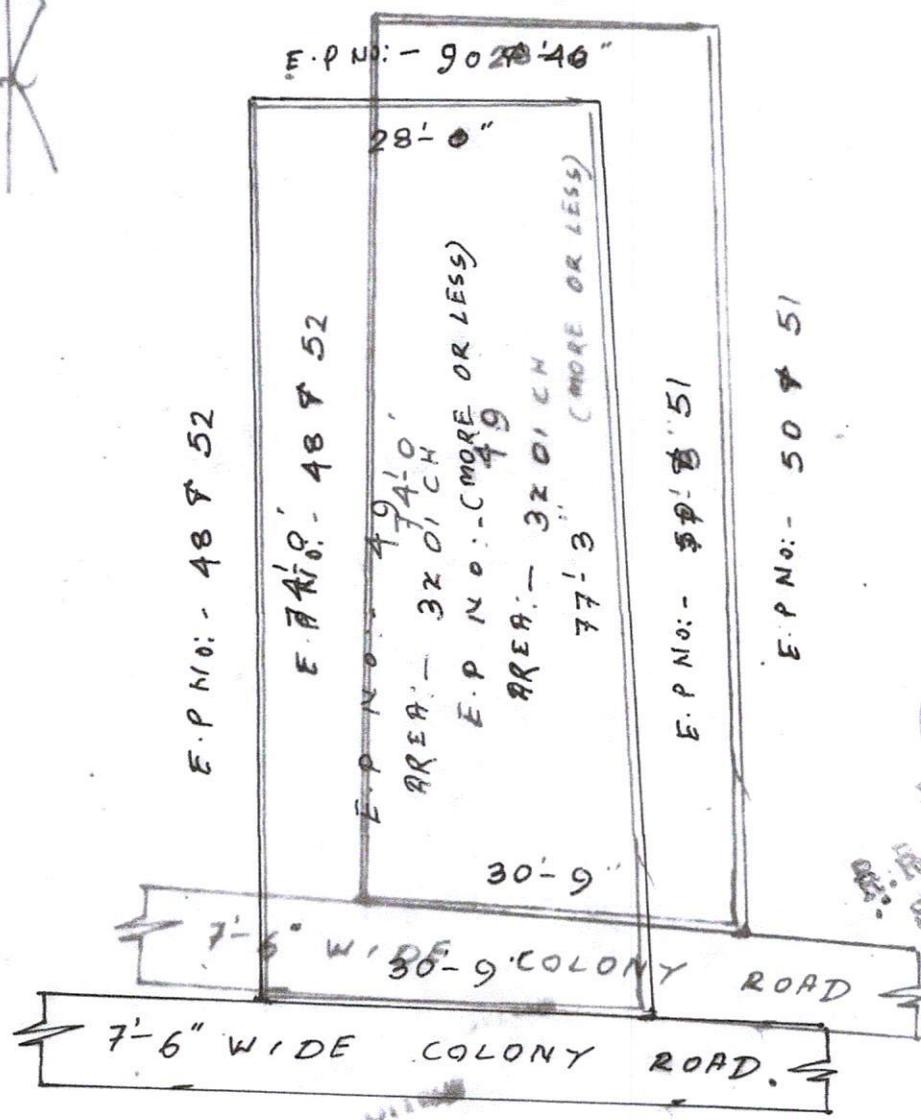 E.P NO:- 90
28'-0"
E.P NO:- 48 & 52
E.P NO:- 48 & 52
74'-0"
E.P NO:- 49
74'-0"
AREA:- 3K 01 CH
(MORE OR LESS)
E.P NO:- 49
AREA:- 3K 01 CH
(MORE OR LESS)
77'-3"
E.P NO:- 51
E.P NO:- 50 & 51
30'-9"
7'-6" WIDE COLONY ROAD
30'-9"
7'-6" WIDE COLONY ROAD.